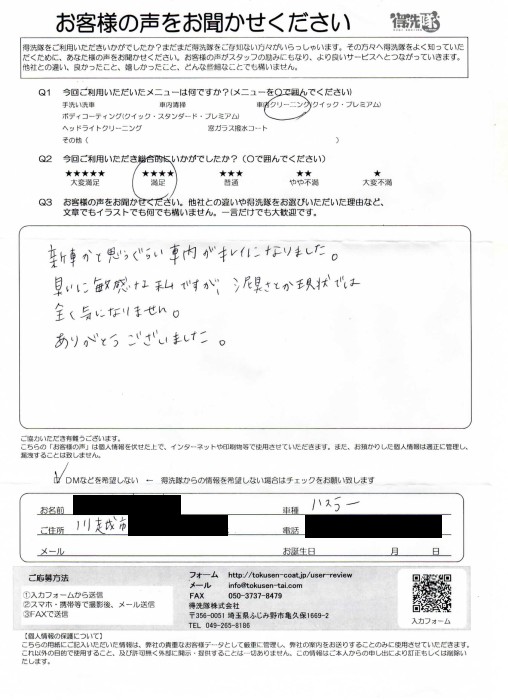 お客様の声をお聞かせください
得洗隊
得洗隊をご利用いただきいかがでしたか?まだまだ得洗隊をご存知ない方々がいらっしゃいます。その方々へ得洗隊をよく知っていた
だくために、あなた様の声をお聞かせください。お客様の声がスタッフの励みにもなり、より良いサービスへとつながっていきます。
他社との違い、良かったこと、嬉しかったこと、どんな些細なことでも構いません。
Q1 今回ご利用いただいたメニューは何ですか?(メニューを〇で囲んでください)
手洗い洗車 車内清掃 車内クリーニング(クイック・プレミアム)
ボディコーティング(クイック・スタンダード・プレミアム)
ヘッドライトクリーニング 窓ガラス撥水コート
その他( )
Q2 今回ご利用いただき総合的にいかがでしたか?(〇で囲んでください)
★★★★★ ★★★★ ★★★ ★★ ★
大変満足 満足 普通 やや不満 大変不満
Q3 お客様の声をお聞かせください。他社との違いや得洗隊をお選びいただいた理由など、
文章でもイラストでも何でも構いません。一言だけでも大歓迎です。
新車かと思うぐらい車内がキレイになりました。
臭いに敏感な私ですが、泥臭さとか現状では
全く気になりません。
ありがとうございました。
ご協力いただき有難うございます。
こちらの「お客様の声」は個人情報を伏せた上で、インターネットや印刷物等で使用させていただきます。また、お預かりした個人情報は適正に管理し、
漏洩することは致しません。
DMなどを希望しない ← 得洗隊からの情報を希望しない場合はチェックをお願い致します
お名前 車種 ハスラー
ご住所 川越市 電話
メール お誕生日 月 日
ご応募方法
①入力フォームから送信
②スマホ・携帯等で撮影後、メール送信
③FAXで送信
フォーム http://tokusen-coat.jp/user-review
メール info@tokusen-tai.com
FAX 050-3737-8479
得洗隊株式会社
〒356-0051 埼玉県ふじみ野市亀久保1669-2
TEL 049-265-8186
入力フォーム
【個人情報の保護について】
こちらの用紙にご記入いただいた情報は、弊社の貴重なお客様データとして厳重に管理し、弊社の案内をお送りすることのみに使用させていただきます。
これ以外の目的で使用すること、及び許可無く外部に開示・提供することは一切ありません。この情報はご本人からの申し出により訂正もしくは削除い
たします。